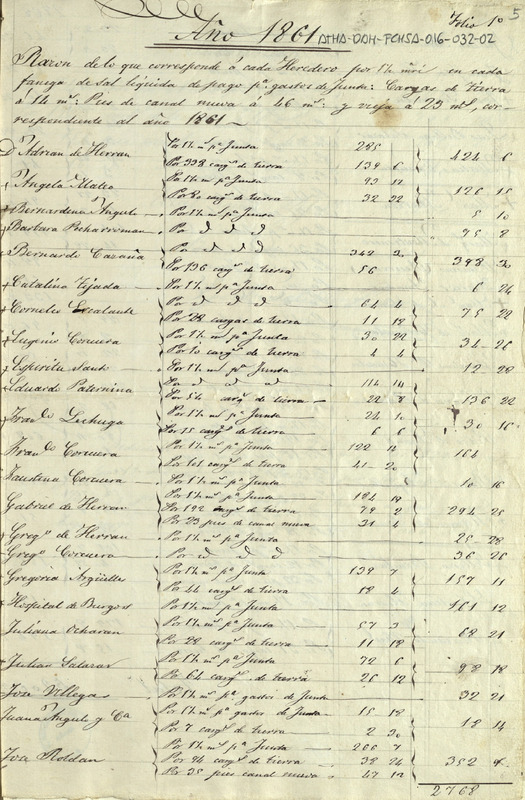 Folio 1º 5
Año 1861
ATHA-DAH-FCHSA-016-032-02
Razon de lo que corresponde á cada Heredero por 1½ mrs en cada
fanega de sal líquida de pago pª gastos de Junta: Cargas de tierra
á 14 ms: Pies de canal nueva á 46 ms: y vieja á 23 ms, cor-
respondiente al año 1861
Dn Adrian de Herran Por 1½ m. pª Junta 285
Por 338 cargs de tierra 139 6 424 6
Angela Mateo Por 1½ m. pª Junta 93
Por 80 cargs de tierra 32 32
Bernardina Angulo Por 1½ m. pª Junta 5 10
Barbara Por d d d
Bernardo Por d d d 342
Por 136 cargs de tierra 56
Catalina Tejada Por 1½ m. pª Junta 6 24
Cornelio Escalante Por d d d 64 4
Por 28 cargas de tierra 11 18 75 22
Eugenio Corcuera Por 1½ m. pª Junta 30 22
Por 10 cargs de tierra 4 4 34 26
Espiritu Santo Por 1½ m. pª Junta 12 28
Eduardo Paternina Por d d d 114 14
Por 54 cargs de tierra 22 8 136 22
Franco Lechuga Por 1½ m. pª Junta 24 10
Por 15 cargs de tierra 6 6 30 16
Franco Corcuera Por 1½ m. pª Junta 122 14
Por 101 cargs de tierra 41 20 164
Faustina Corcuera Por 1½ m. pª Junta 10 16
Gabriel de Herran Por 1½ m. pª Junta 184
Por 192 cargs de tierra 79 2
Por 23 pies de canal nueva 31 4
Gregº de Herran Por 1½ m. pª Junta 25 28
Gregº Corcuera Por d d d 36 26
Gregoria Argüelles Por 1½ m. pª Junta 139 7
Por 44 cargs de tierra 18 4 157 11
Hospital de Burgos Por 1½ m. pª Junta 161 12
Juliana Ocharan Por 1½ m. pª Junta 57 3
Por 28 cargs de tierra 11 18 68 21
Julian Salazar Por 1½ m. pª Junta 72 6
Por 64 cargs de tierra 26 12 98 18
José Villegas Por 1½ m. pª gastos de Junta 32 21
Juana Angulo y Cª Por 1½ m. pª gastos de Junta 15 18
Por 7 cargs de tierra 2 30 18 14
José Roldan Por 1½ m. pª Junta 266 7
Por 94 cargs de tierra 38 24
Por 35 pies canal nueva 47 12 352
2768